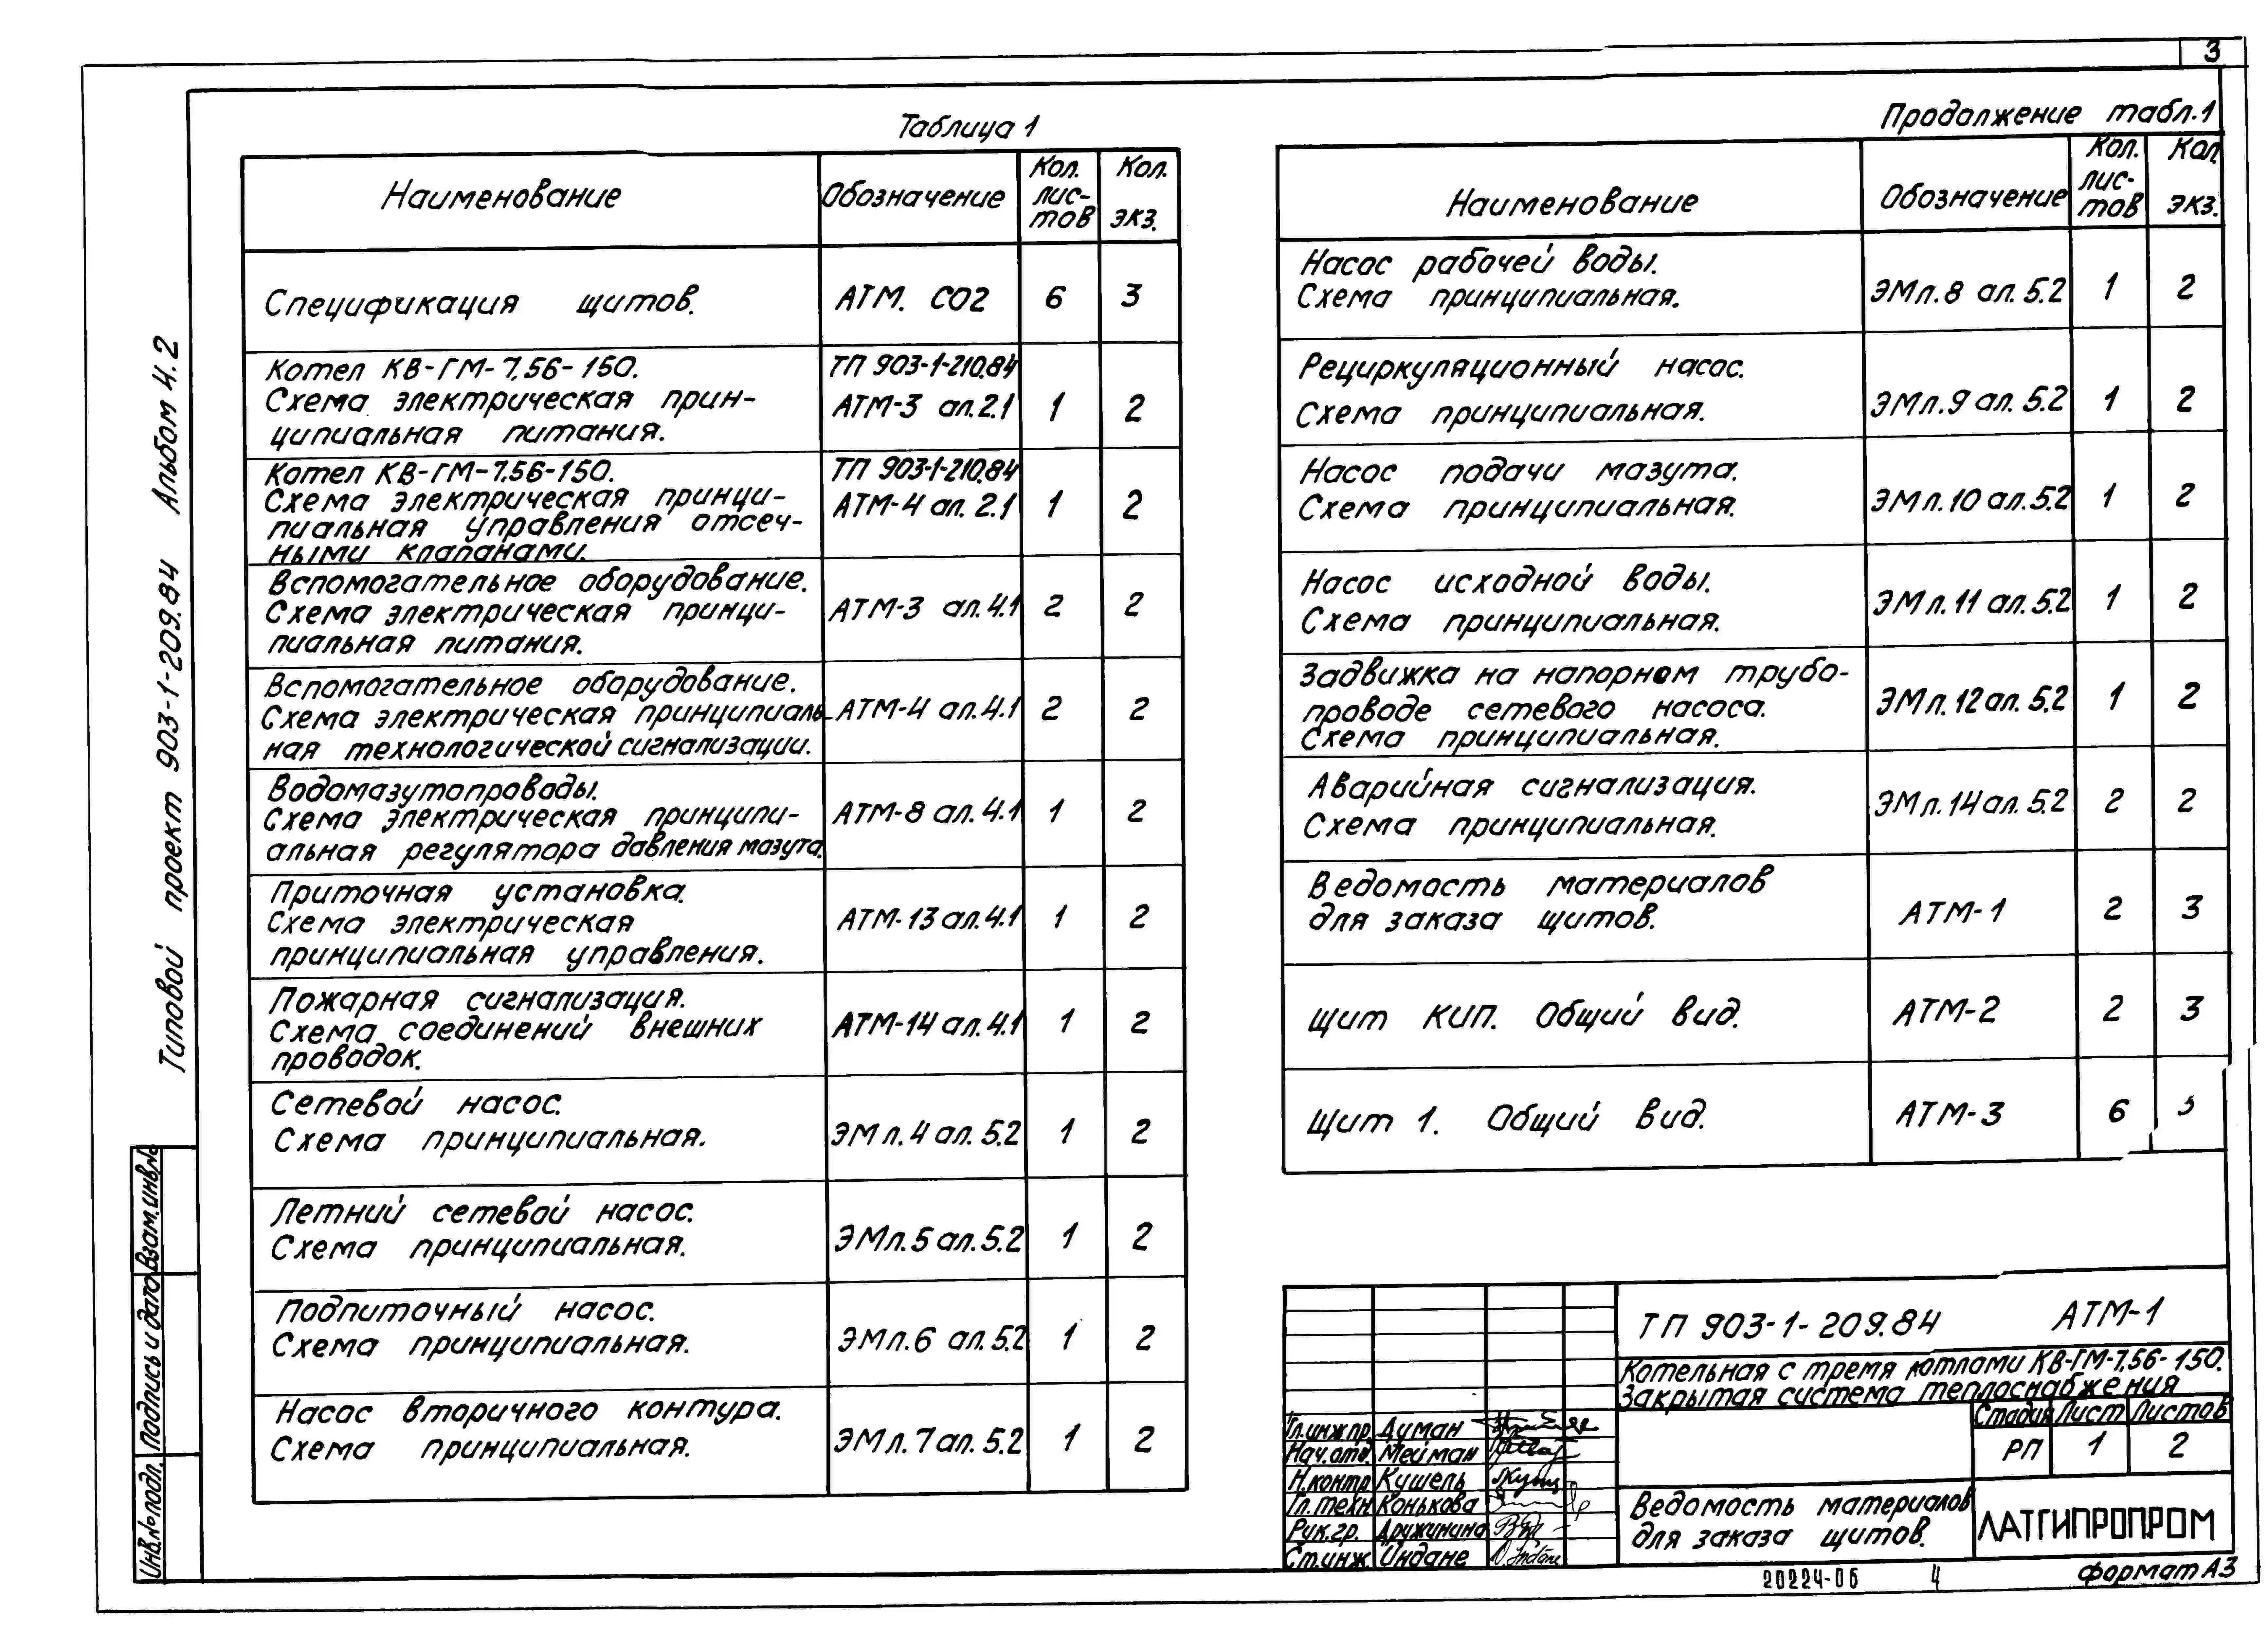 3
Таблица 1
Наименование
Обозначение
Кол. лис-тов
Кол. экз.
Спецификация щитов. АТМ. СО2 6 3
Котел КВ-ГМ-7,56-150. ТП 903-1-210.84
Схема электрическая прин- АТМ-3 ал.2.1 1 2
ципиальная питания.
Котел КВ-ГМ-7.56-150. ТП 903-1-210.84
Схема электрическая принци- АТМ-4 ал. 2.1 1 2
пиальная управления отсеч-
ными клапанами.
Вспомогательное оборудование.
Схема электрическая принци- АТМ-3 ал.4.1 2 2
пиальная питания.
Вспомогательное оборудование.
Схема электрическая принципиаль- АТМ-4 ал.4.1 2 2
ная технологической сигнализации.
Водомазутопроводы.
Схема электрическая принципи- АТМ-8 ал.4.1 1 2
альная регулятора давления мазута.
Приточная установка.
Схема электрическая АТМ-13 ал.4.1 1 2
принципиальная управления.
Пожарная сигнализация.
Схема соединений внешних АТМ-14 ал.4.1 1 2
проводок.
Сетевой насос.
Схема принципиальная. ЭМл.4 ал. 5.2 1 2
Летний сетевой насос.
Схема принципиальная. ЭМл.5 ал.5.2 1 2
Подпиточный насос.
Схема принципиальная. ЭМл.6 ал.5.2 1 2
Насос вторичного контура.
Схема принципиальная. ЭМл.7 ал.5.2 1 2
Продолжение табл.1
Наименование
Обозначение
Кол. лис-тов
Кол. экз.
Насос рабочей воды.
Схема принципиальная. ЭМл.8 ал. 5.2 1 2
Рециркуляционный насос.
Схема принципиальная. ЭМл.9 ал. 5.2 1 2
Насос подачи мазута.
Схема принципиальная. ЭМл.10 ал.5.2 1 2
Насос исходной воды.
Схема принципиальная. ЭМл.11 ал.5.2 1 2
Задвижка на напорном трубо-
проводе сетевого насоса. ЭМл.12 ал. 5.2 1 2
Схема принципиальная.
Аварийная сигнализация.
Схема принципиальная. ЭМл.14 ал. 5.2 2 2
Ведомость материалов
для заказа щитов. АТМ-1 2 3
Щит КИП. Общий вид. АТМ-2 2 3
Щит 1. Общий вид. АТМ-3 6 3
Типовой проект 903-1-209.84 Альбом 4.2
Взам.инв.№
Подпись и дата
Инв.№ подл.
ТП 903-1-209.84 АТМ-1
Котельная с тремя котлами КВ-ГМ-7,56-150.
Закрытая система теплоснабжения
Стадия Лист Листов
РП 1 2
Гл.инж.пр. Думан
Нач.отд. Мейман
Н.контр Кушель
Гл.техн Конькова
Рук.гр. Дружинина
Ст.инж. Индане
Ведомость материалов
для заказа щитов.
ЛАТГИПРОПРОМ
20224-06 4 формат А3